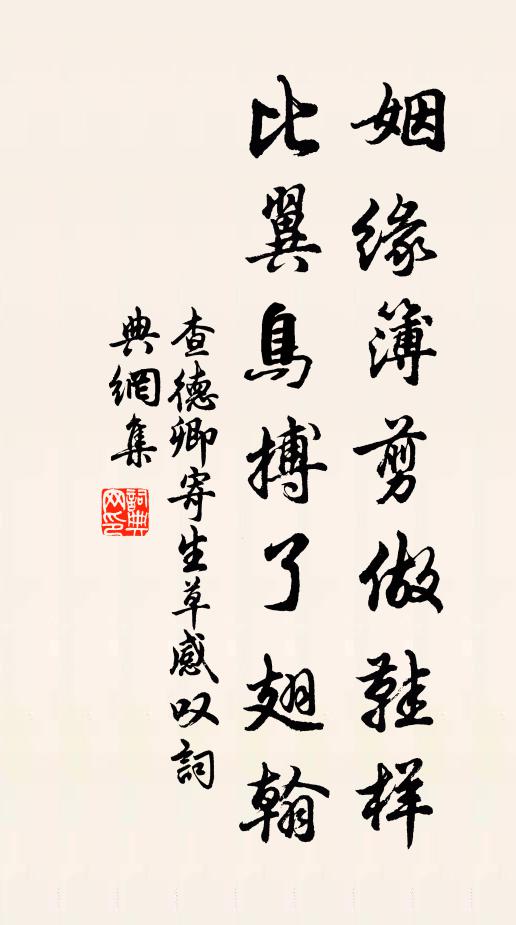 姻缘簿剪做鞋样
比翼鳥搏了翅翰
查德卿寄生草感叹詞
典網集
詞典
网印